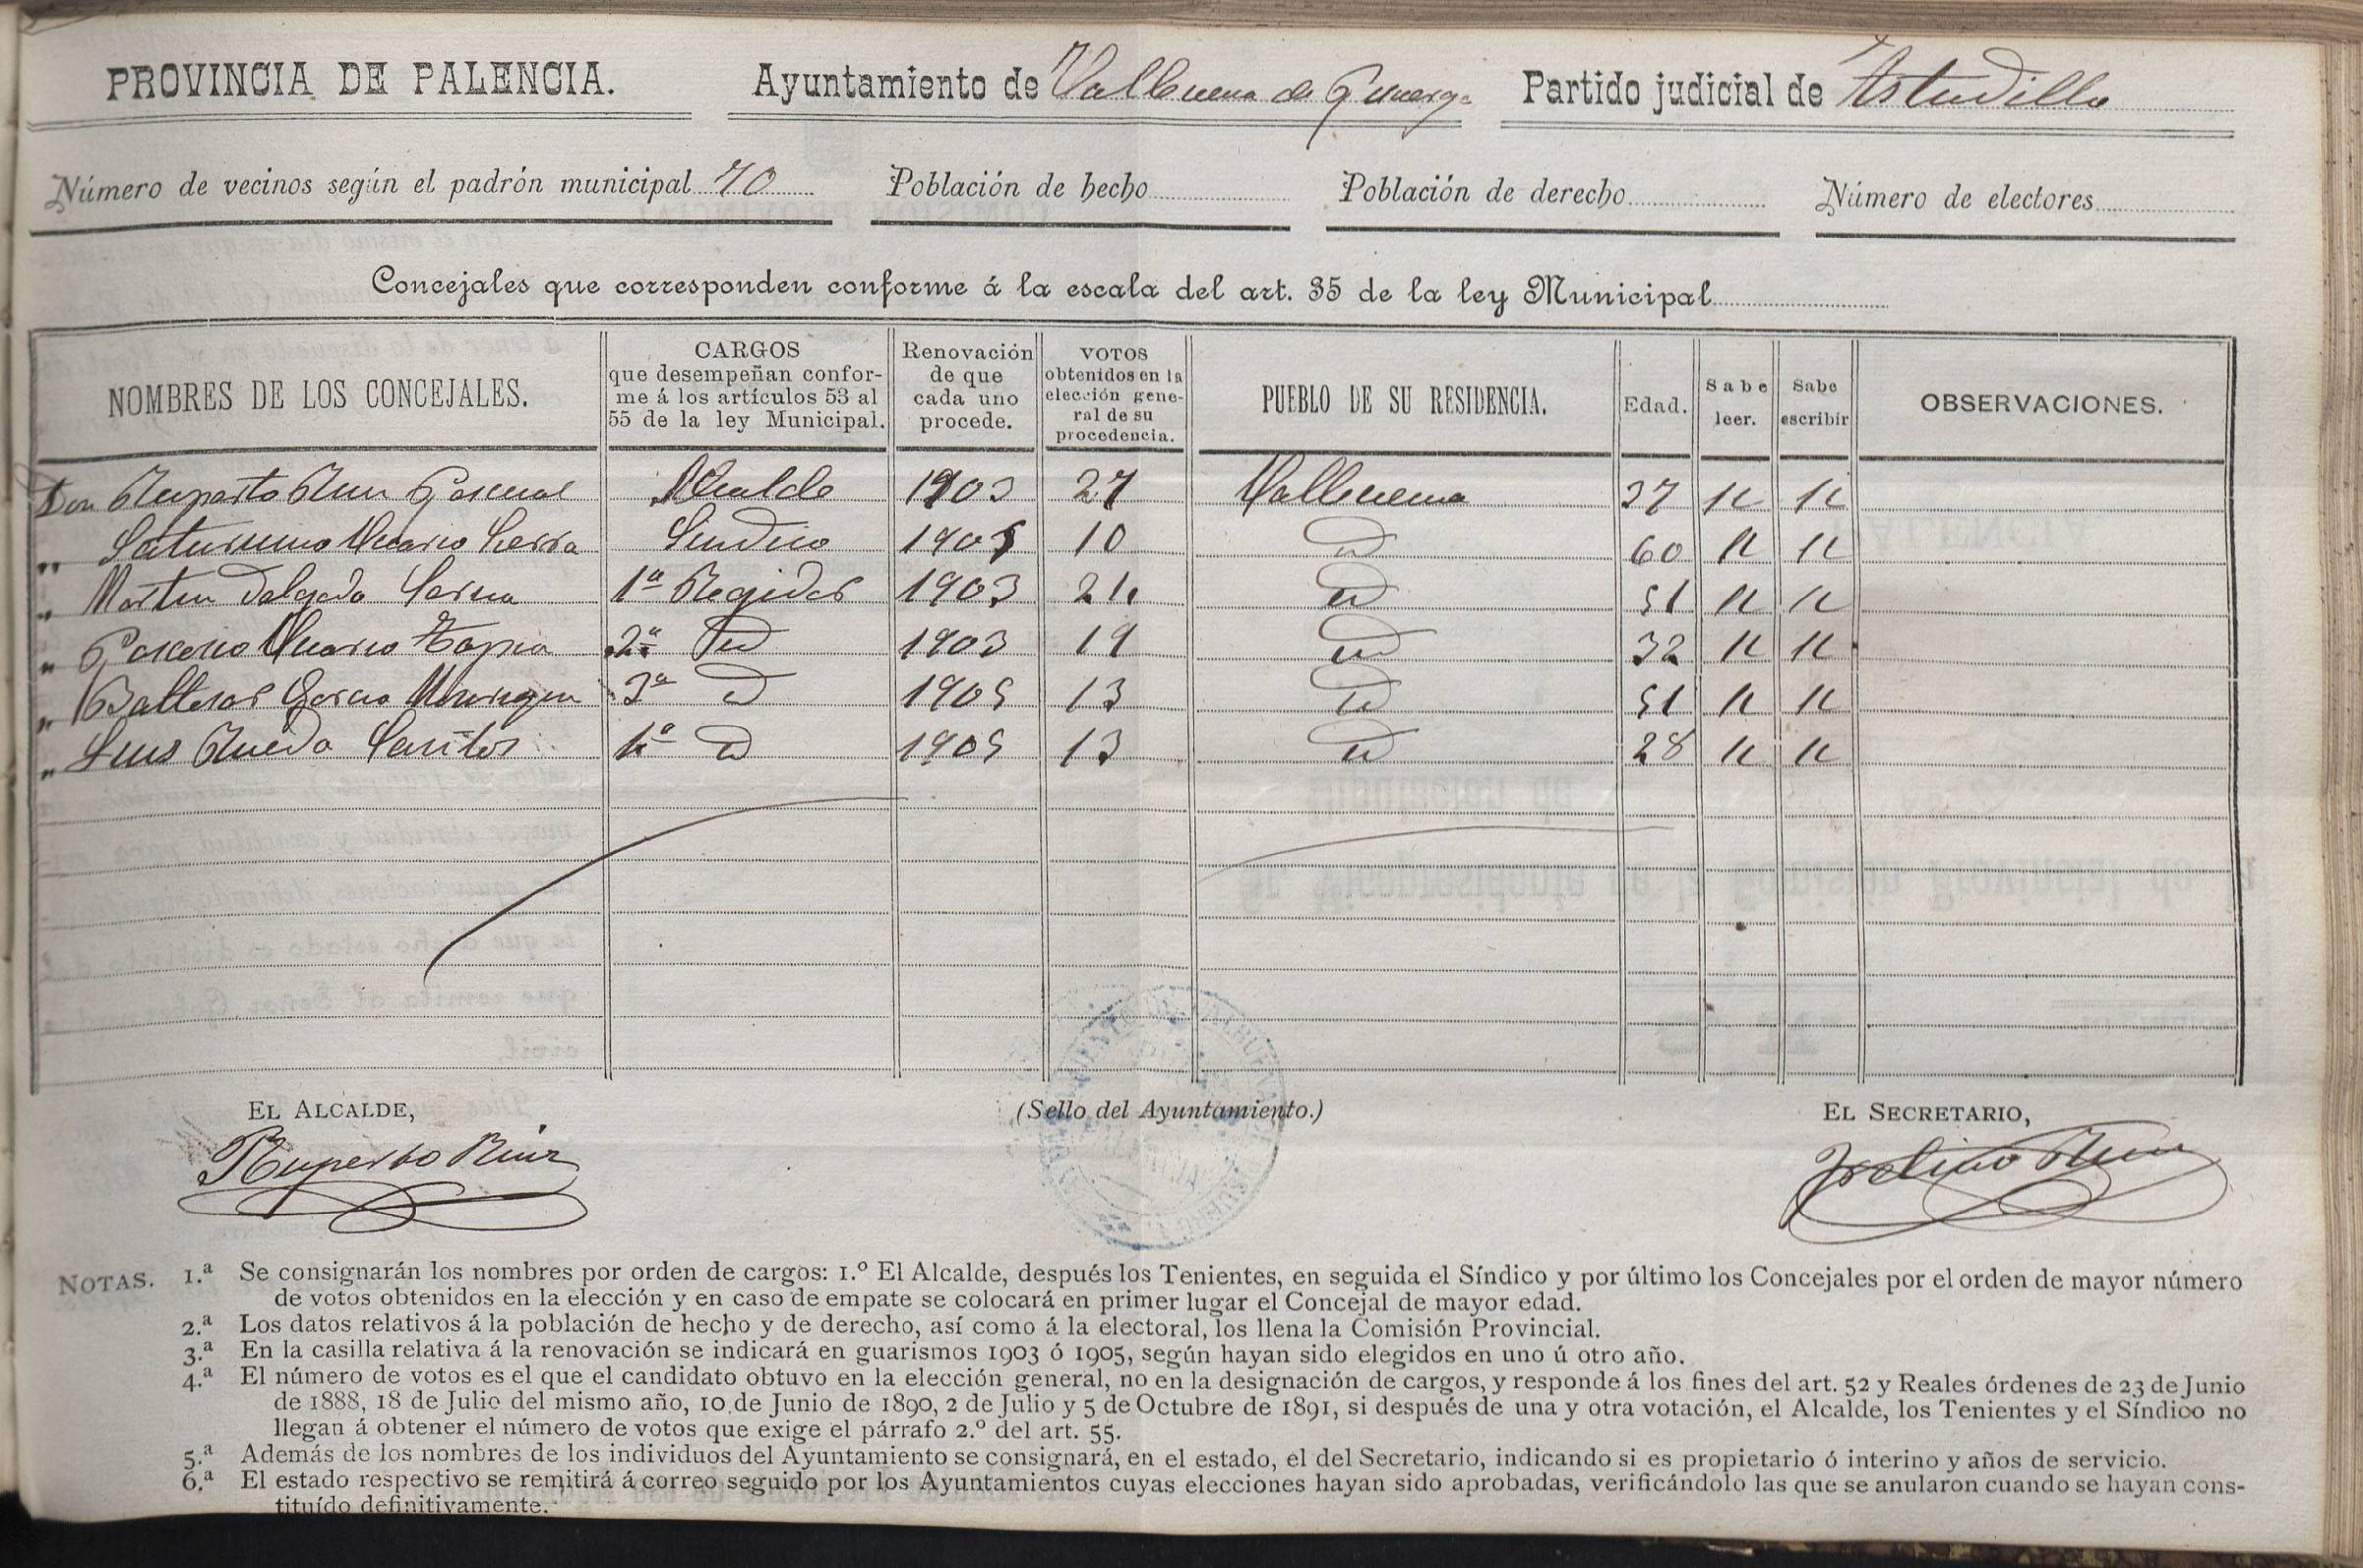 PROVINCIA DE PALENCIA. Ayuntamiento de Valbuena de Pisuerga Partido judicial de Astudillo
Número de vecinos según el padrón municipal 70 Población de hecho Población de derecho Número de electores
Concejales que corresponden conforme á la escala del art. 35 de la ley Municipal
NOMBRES DE LOS CONCEJALES. CARGOS que desempeñan conforme á los artículos 53 al 55 de la ley Municipal. Renovación de que cada uno procede. VOTOS obtenidos en la elección general de su procedencia. PUEBLO DE SU RESIDENCIA. Edad. Sabe leer. Sabe escribir OBSERVACIONES.
Don Ruperto Ruiz Pascual Alcalde 1903 27 Valbuena 37 11 11
" Saturnino Sindico 1905 10 id 60 11 11
" Martin Delgado 1ª Regidor 1903 24 id 51 11 11
" Tapia 2ª id 1903 19 id 32 11 11
" Baltasar Garcia 3ª id 1905 13 id 51 11 11
" Luis Rueda Santos 4ª id 1905 13 id 28 11 11
EL ALCALDE, (Sello del Ayuntamiento.) EL SECRETARIO,
Ruperto Ruiz
NOTAS. 1.ª Se consignarán los nombres por orden de cargos: 1.º El Alcalde, después los Tenientes, en seguida el Síndico y por último los Concejales por el orden de mayor número
de votos obtenidos en la elección y en caso de empate se colocará en primer lugar el Concejal de mayor edad.
2.ª Los datos relativos á la población de hecho y de derecho, así como á la electoral, los llena la Comisión Provincial.
3.ª En la casilla relativa á la renovación se indicará en guarismos 1903 ó 1905, según hayan sido elegidos en uno ú otro año.
4.ª El número de votos es el que el candidato obtuvo en la elección general, no en la designación de cargos, y responde á los fines del art. 52 y Reales órdenes de 23 de Junio
de 1888, 18 de Julio del mismo año, 10 de Junio de 1890, 2 de Julio y 5 de Octubre de 1891, si después de una y otra votación, el Alcalde, los Tenientes y el Síndico no
llegan á obtener el número de votos que exige el párrafo 2.º del art. 55.
5.ª Además de los nombres de los individuos del Ayuntamiento se consignará, en el estado, el del Secretario, indicando si es propietario ó interino y años de servicio.
6.ª El estado respectivo se remitirá á correo seguido por los Ayuntamientos cuyas elecciones hayan sido aprobadas, verificándolo las que se anularon cuando se hayan cons-
tituído definitivamente.